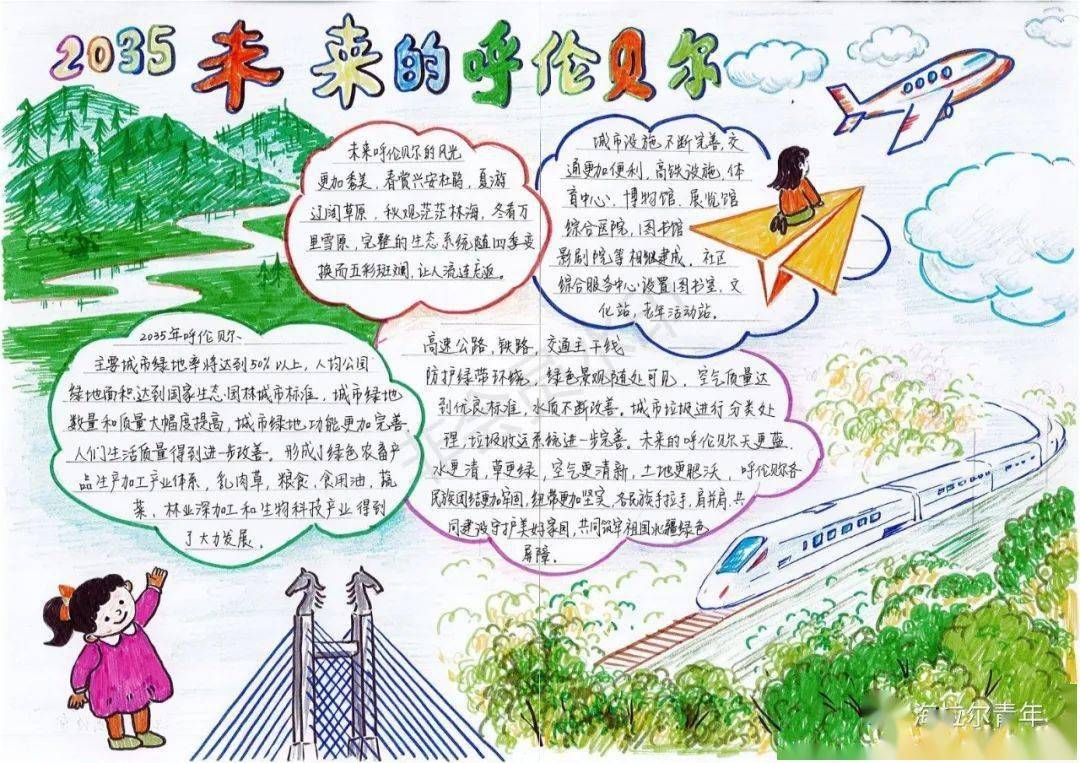 2035 未来的呼伦贝尔
未来呼伦贝尔的风光
更加秀美，春赏兴安杜鹃，夏游
辽阔草原，秋观茫茫林海，冬看万
里雪原，完整的生态系统随四季变
换而五彩斑斓，让人流连忘返。
城市设施不断完善，交
通更加便利，高铁设施、体
育中心、博物馆、展览馆
综合医院、图书馆
影剧院等相继建成，社区
综合服务中心设置图书室、文
化站，老年活动站。
2035年呼伦贝尔
主要城市绿地率将达到50%以上，人均公园
绿地面积达到国家生态园林城市标准，城市绿地
数量和质量大幅度提高，城市绿地功能更加完善，
人们生活质量得到进一步改善。形成了绿色农畜产
品生产加工产业体系，乳肉草，粮食，食用油，蔬
菜，林业深加工和生物科技产业得到
了大力发展。
高速公路，铁路，交通主干线
防护绿带环绕，绿色景观随处可见，空气质量达
到优良标准，水质不断改善。城市垃圾进行分类处
理，垃圾收运系统进一步完善。未来的呼伦贝尔天更蓝
水更清，草更绿，空气更清新，土地更肥沃，呼伦贝尔各
民族团结更加牢固，纽带更加坚实，各民族手拉手，肩并肩，共
同建设守护美好家园，共同筑牢祖国北疆绿色
屏障。
海拉尔青年